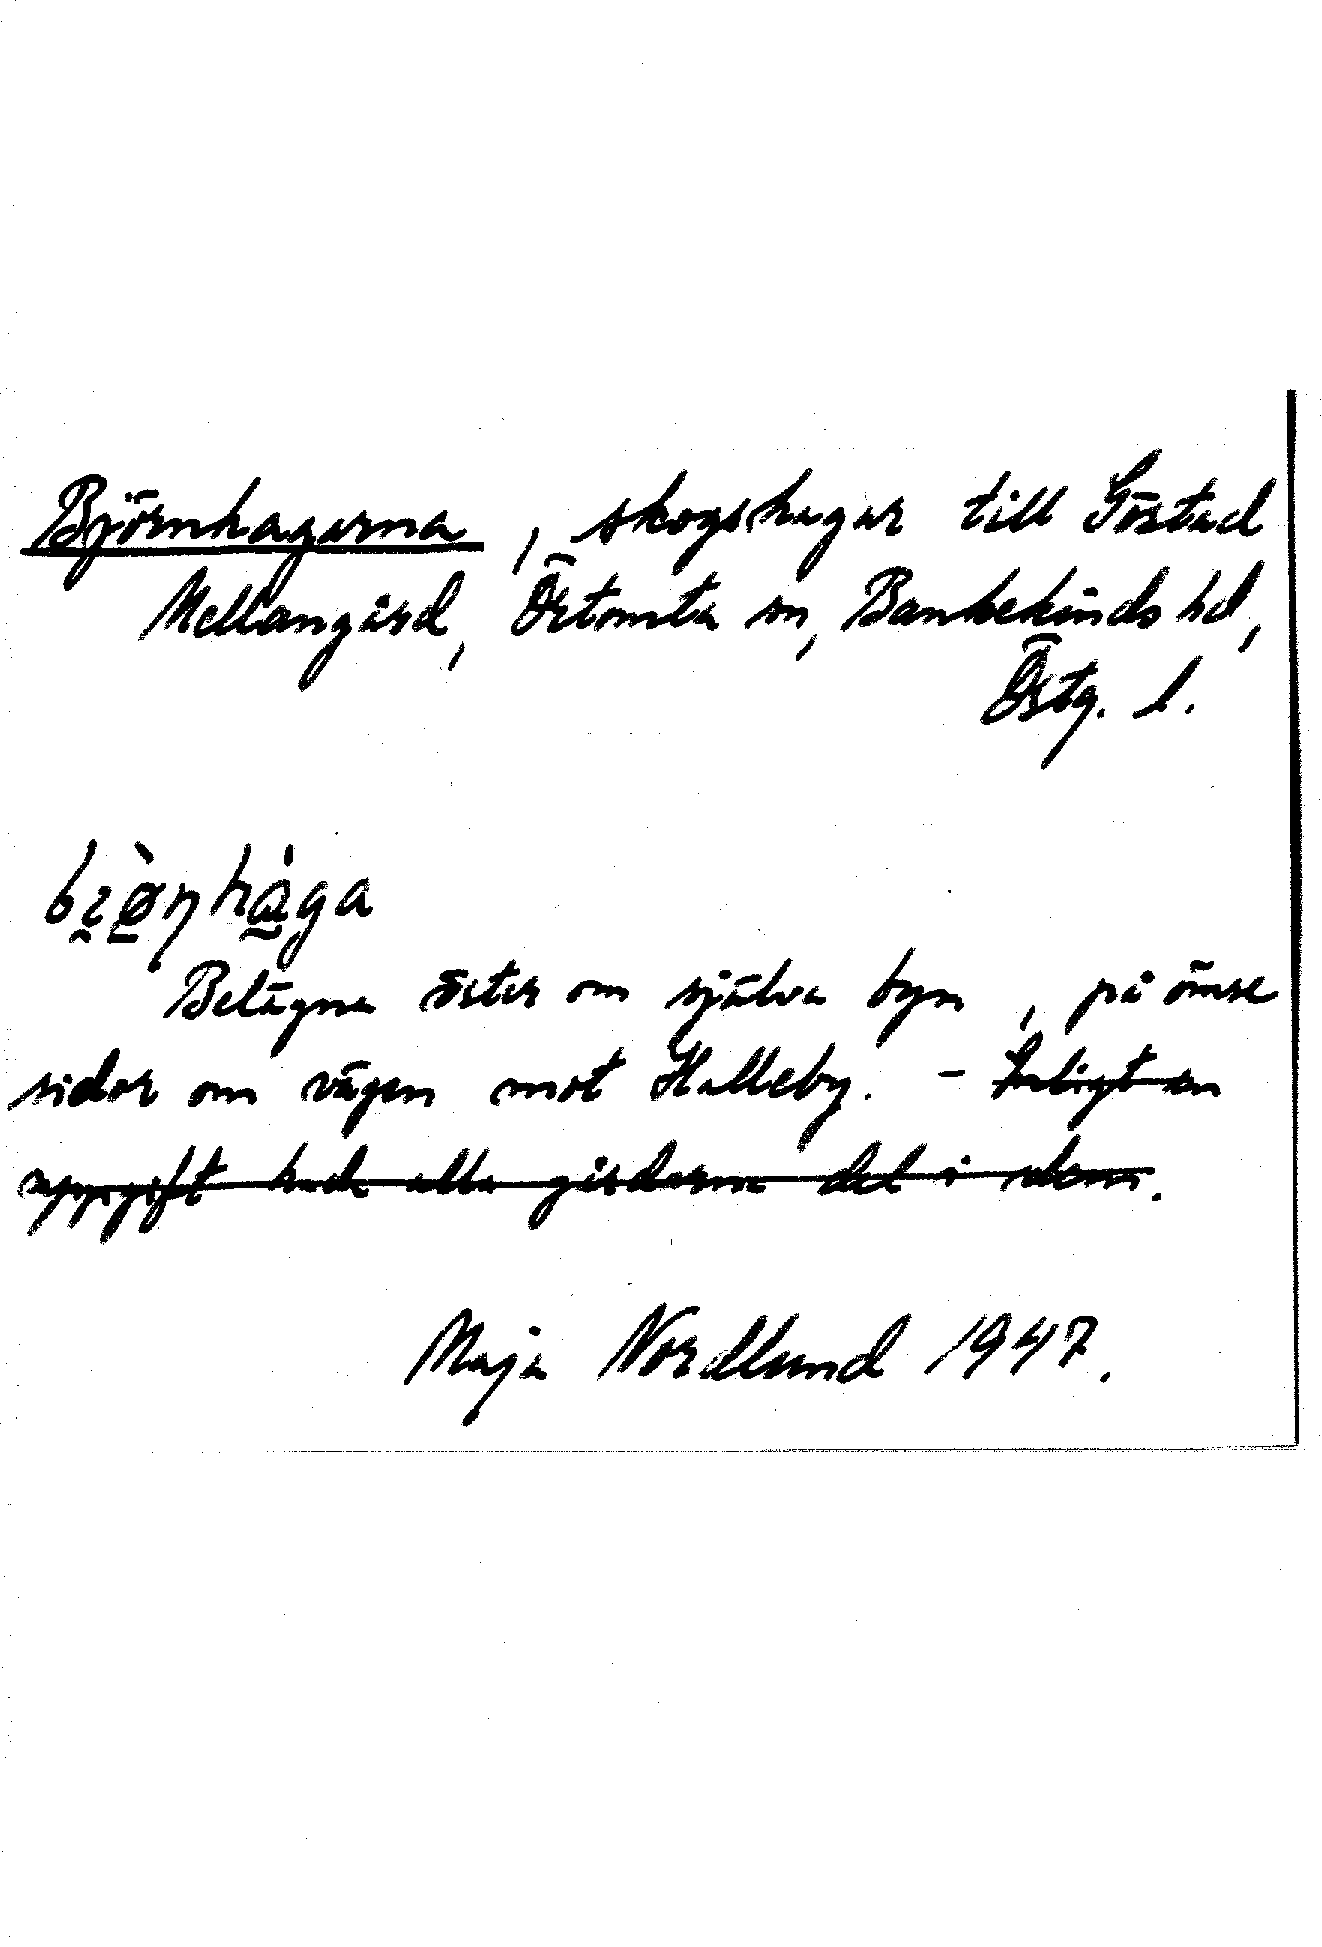 Björnhagarna, skogshagar till Göstad
Mellangård, Östomta sn, Bankekinds hd,
Östg. l.
Belägna öster om själva byn, på ömse
sidor om vägen mot Halleby. – Enligt en
uppgift hade alla gårdarna del i dem.
Maja Nordlund 1947.